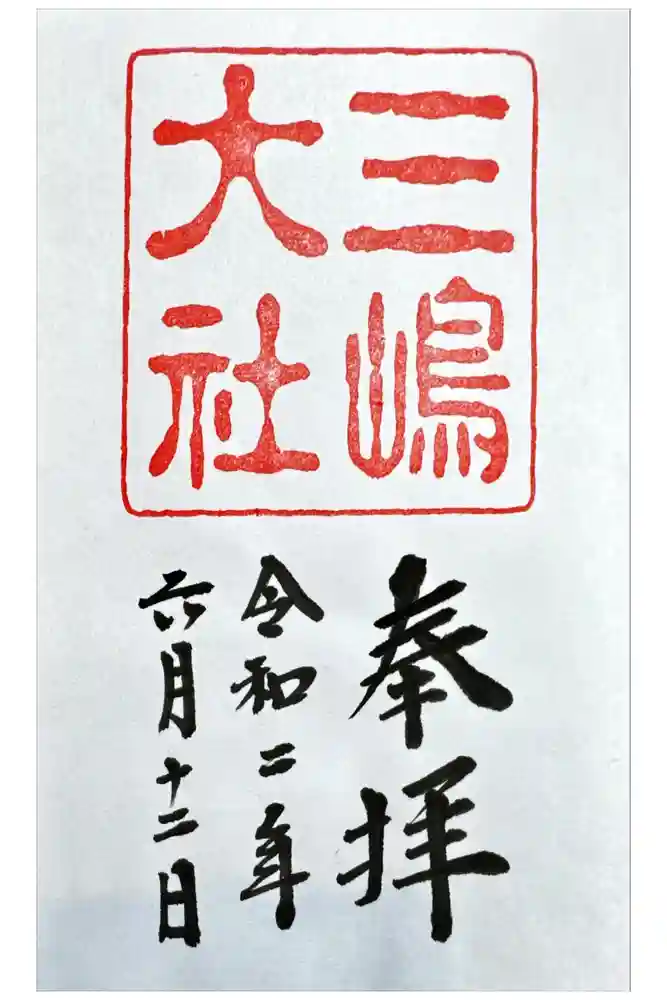 三嶋
大社
奉拝
令和二年
六月十二日